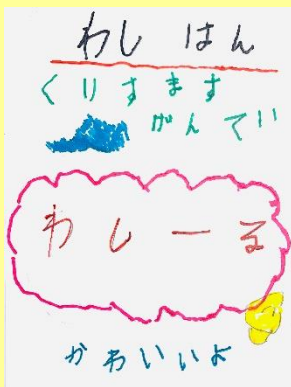 わし はん
くりすます
がんてい
わしーる
かわいいよ